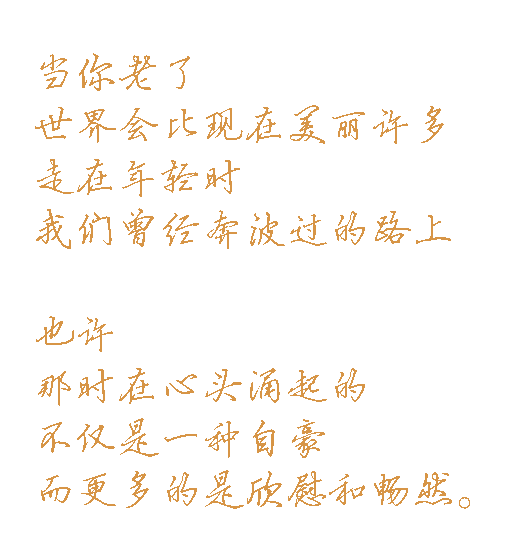 当你老了
世界会比现在美丽许多
走在年轻时
我们曾经奔波过的路上
也许
那时在心头涌起的
不仅是一种自豪
而更多的是欣慰和畅然。